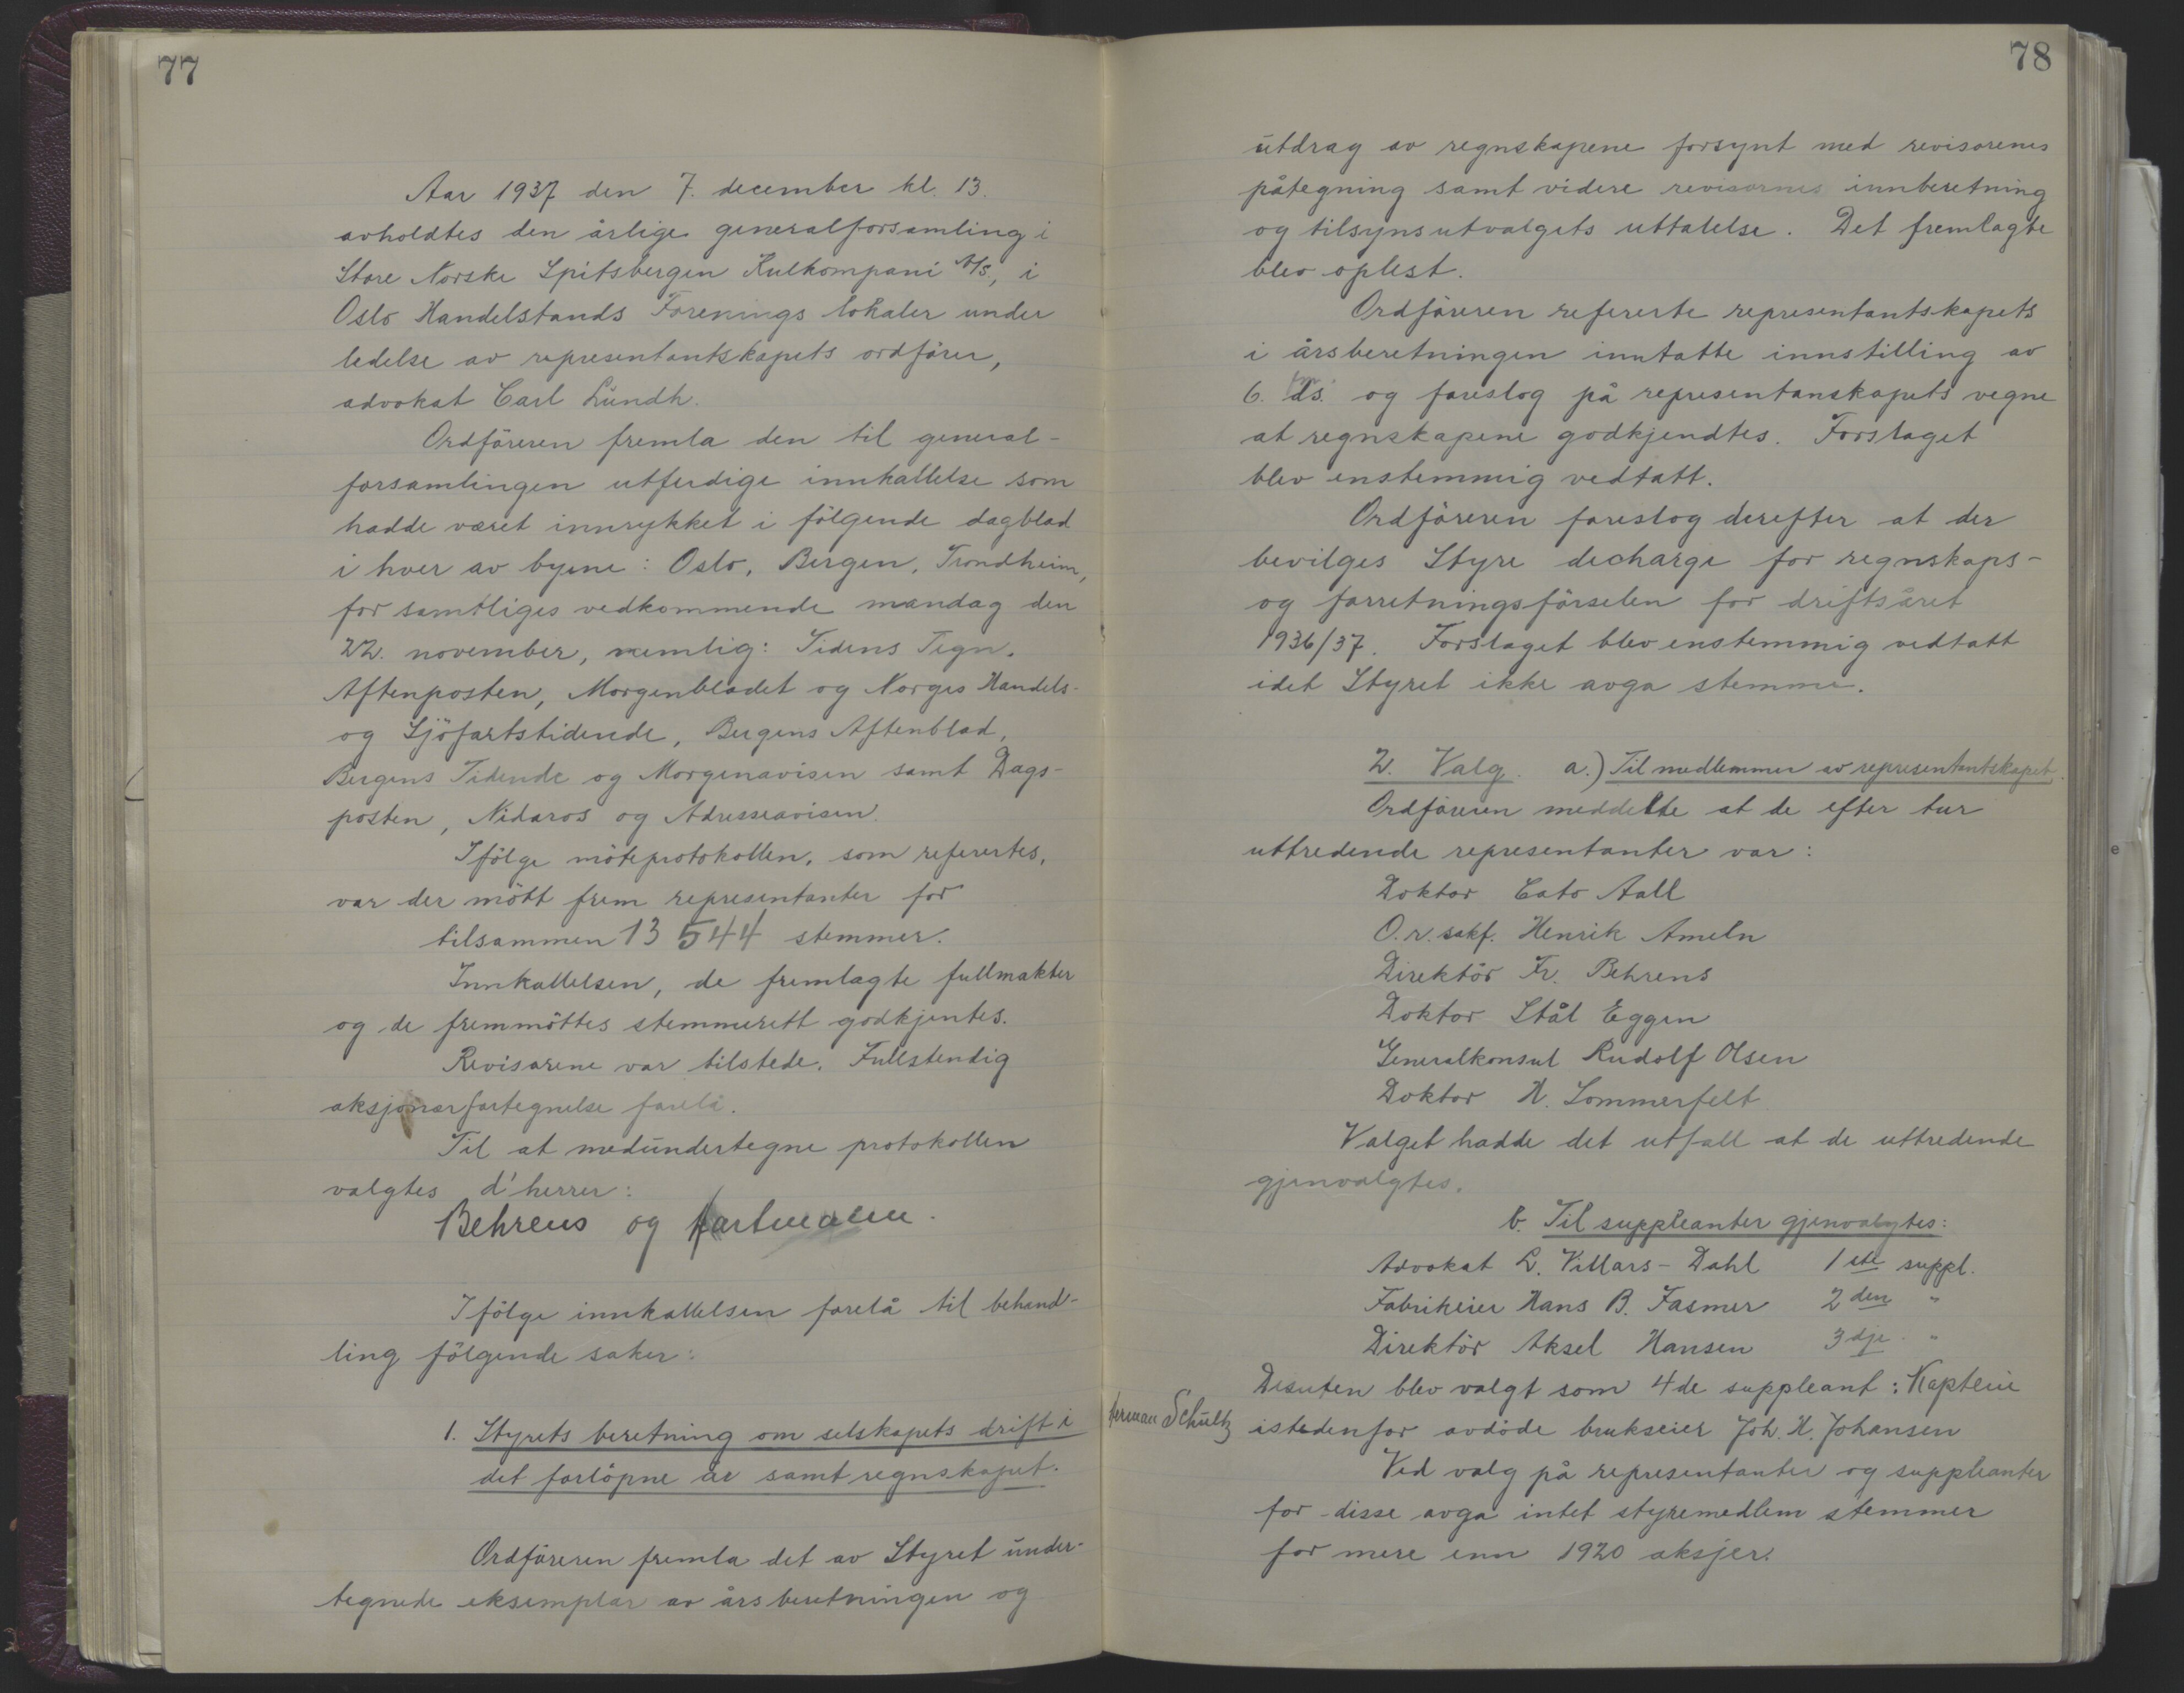 77
Aar 1937 den 7. december kl. 13.
avholdtes den årlige generalforsamling i
Store Norske Spitsbergen Kulkompani A/S, i
Oslo Handelstands Forenings lokaler under
ledelse av representantskapets ordförer,
advokat Carl Lundh.
Ordföreren fremla den til general-
forsamlingen utferdige innkallelse som
hadde været innrykket i fölgende dagblad
i hver av byene: Oslo, Bergen, Trondheim,
for samtliges vedkommende mandag den
22. november, nemlig: Tidens Tegn.
Aftenposten, Morgenbladet og Norges Handels-
og Sjöfartstidende, Bergens Aftenblad,
Bergens Tidende og Morgenavisen samt Dags-
posten, Nidaros og Adresseavisen.
Ifölge möteprotokollen, som referertes,
var der mött frem representanter for
tilsammen 13 544 stemmer.
Innkallelsen, de fremlagte fullmakter
og de fremmöttes stemmerett godkjentes.
Revisorene var tilstede. Fullstendig
aksjonærfortegnelse forelå.
Til at medundertegne protokollen
valgtes d'herrer:
Behrens og Hartmann.
Ifölge innkallelsen forelå til behand-
ling fölgende saker:
1. Styrets beretning om selskapets drift i
det forlöpne år samt regnskapet.
Ordföreren fremla det av Styret under-
tegnede eksemplar av årsberetningen og
78
utdrag av regnskapene forsynt med revisorenes
påtegning samt videre revisornes innberetning
og tilsynsutvalgets uttalelse. Det fremlagte
blev oplest.
Ordföreren refererte representantskapets
i årsberetningen inntatte innstilling av
6. ds. og foreslog på representanskapets vegne
at regnskapene godkjendtes. Forslaget
blev enstemmig vedtatt.
Ordföreren foreslog derefter at der
bevilges Styre decharge for regnskaps-
og forretningsförselen for driftsåret
1936/37. Forslaget blev enstemmig vedtatt
idet Styret ikke avga stemme.
2. Valg. a.) Til medlemmer av representantskapet.
Ordföreren meddelte at de efter tur
uttredende representanter var:
Doktor Cato Aall
O.r.sakf. Henrik Ameln
Direktör Fr. Behrens
Doktor Stål Eggen
Generalkonsul Rudolf Olsen
Doktor H. Sommerfelt
Valget hadde det utfall at de uttredende
gjenvalgtes.
b. Til suppleanter gjenvalgtes:
Advokat L. Villars-Dahl 1ste suppl.
Fabrikeier Hans B. Fasmer 2den "
Direktör Aksel Hansen 3dje "
Desuten blev valgt som 4de suppleant: Kaptein
Herman Schultz istedenfor avdöde brukseier Joh. H. Johansen
Ved valg på representanter og suppleanter
for disse avga intet styremedlem stemmer
for mere enn 1920 aksjer.